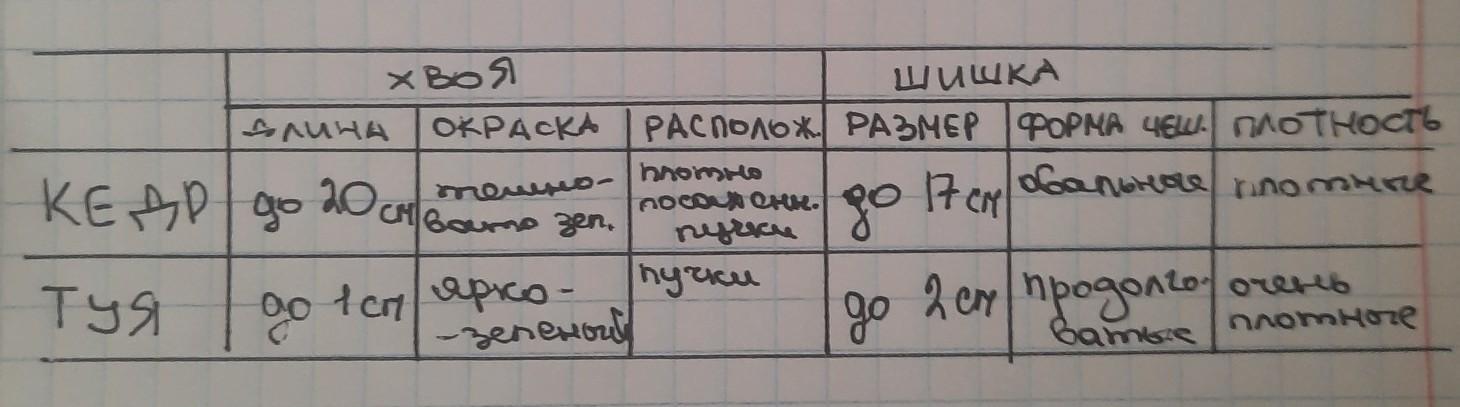 ХВОЯ ШИШКА
ДЛИНА ОКРАСКА РАСПОЛОЖ. РАЗМЕР ФОРМА ЧЕШ. ПЛОТНОСТЬ
КЕДР до 20 см темно-
вато зел. плотно
посаженн.
пучки до 17 см овальные плотные
ТУЯ до 1 см ярко-
-зеленый пучки до 2 см продолго-
ватые очень
плотные